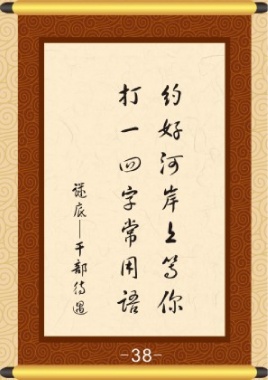 约好河岸上等你
打一四字常用语
谜底——干部待遇
-38-